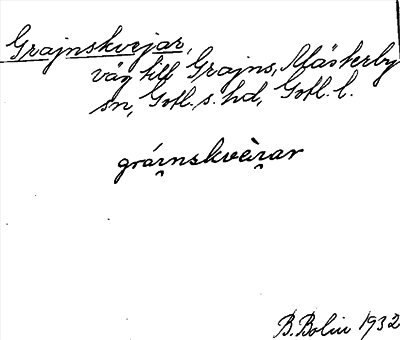 Grajnskvejar,
väg till Grajns, Mästerby
sn, Gotl. s. hd, Gotl. l.
grái̯nskvèi̯ar
B. Bolin 1932